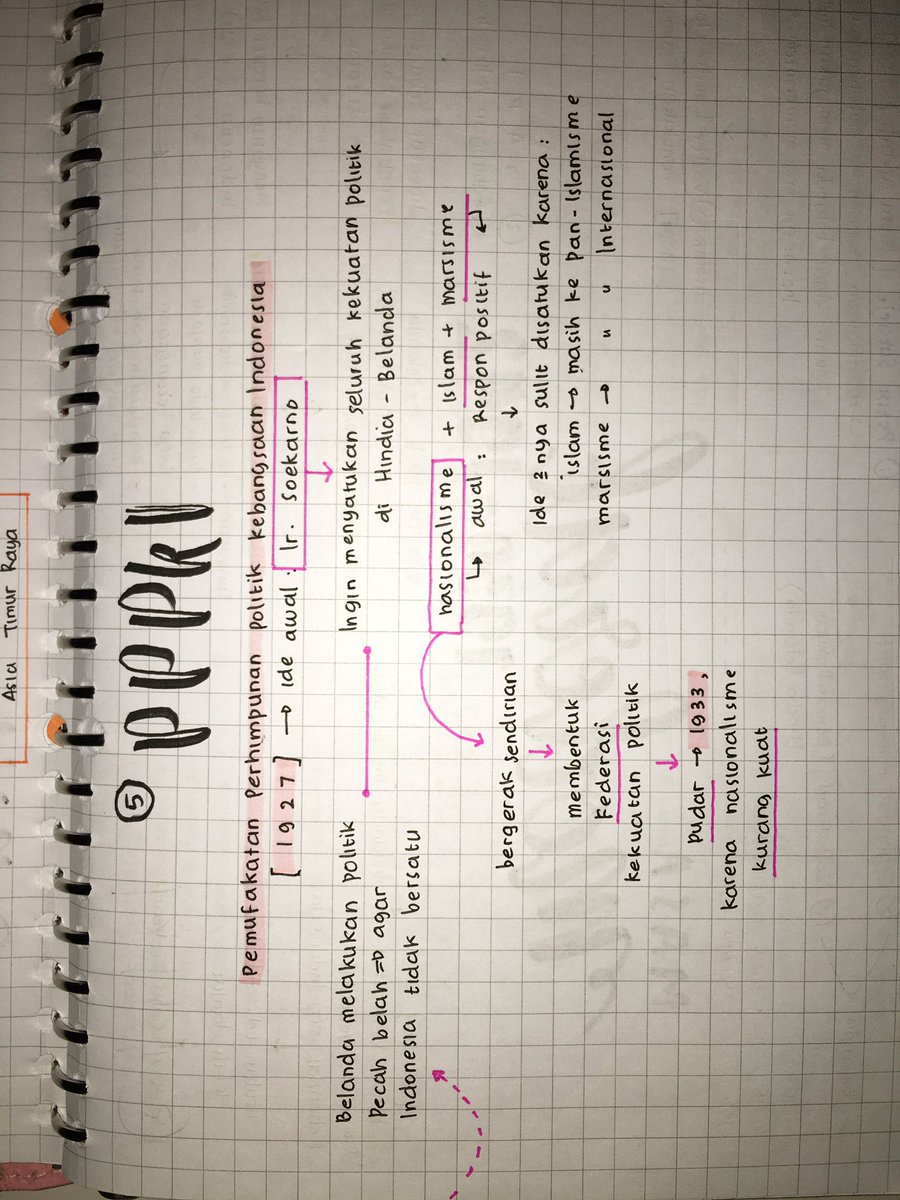 Asia Timur Raya
⑤ PPPKI
Pemufakatan Perhimpunan Politik kebangsaan Indonesia
[1927] → ide awal : Ir. Soekarno
Belanda melakukan politik
pecah belah ⇒ agar
Indonesia tidak bersatu
Ingin menyatukan seluruh kekuatan politik
di Hindia - Belanda
nasionalisme + Islam + marsisme
↳ awal : Respon positif ↵
↓
Ide ²nya sulit disatukan karena :
islam → masih ke pan-Islamisme
marsisme → " " Internasional
bergerak sendirian
↓
membentuk
Federasi
kekuatan politik
↓
pudar → 1933,
karena nasionalisme
kurang kuat